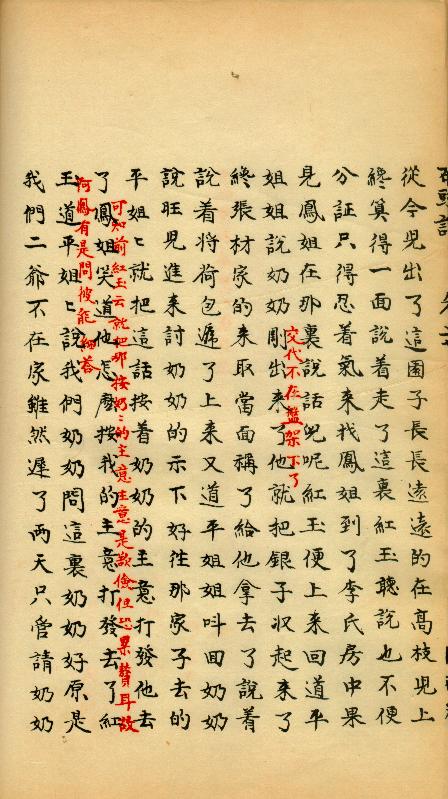 從今兒出了這園子長長遠遠的在髙枝兒上
纔算得一面說着走了這裏紅玉聽說也不便
分証只得忍着氣來找鳳姐到了李氏房中果
見鳳姐在那裏說話兒呢紅玉便上來回道平
交代不在盤架下了
姐姐說奶奶剛出來了他就把銀子收起來了
纔張材家的來取當面稱了給他拿去了說着
說着將荷包遞了上來又道平姐姐呌回奶奶
說旺兒進來討奶奶的示下好往那家子去的
平姐〻就把這話按着奶奶的主意打發他去
可知前紅玉云就把那按奶〻的主意主意是欺儉但恐累贅耳故
了鳳姐笑道他怎麽按我的主意打發去了紅
阿鳳有是問彼能細荅
玉道平姐〻說我們奶奶問這裏奶奶好原是
我們二爺不在家雖然遲了兩天只管請奶奶